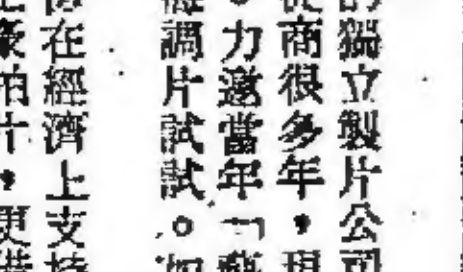 的獨立製片公司
從商很多年,現
。力邀當年「
調片試試。如
在經濟上支持
豪拍片,更